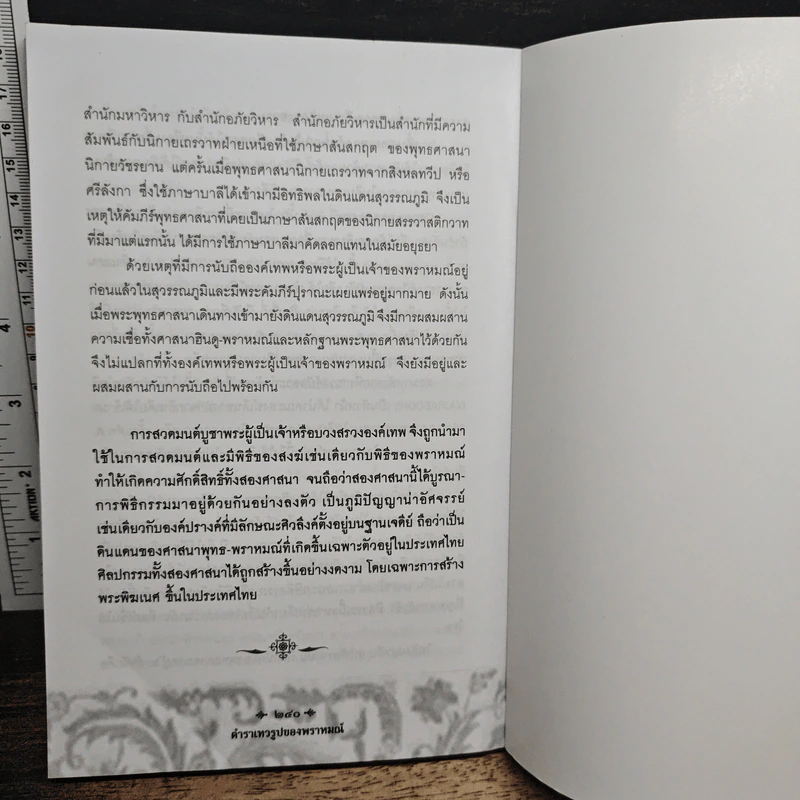 สำนักมหาวิหาร กับสำนักอภัยวิหาร สำนักอภัยวิหารเป็นสำนักที่มีความ
สัมพันธ์กับนิกายเถรวาทฝ่ายเหนือที่ใช้ภาษาสันสกฤต ของพุทธศาสนา
นิกายวัชรยาน แต่ครั้นเมื่อพุทธศาสนานิกายเถรวาทจากสิงหลทวีป หรือ
ศรีลังกา ซึ่งใช้ภาษาบาลีได้เข้ามามีอิทธิพลในดินแดนสุวรรณภูมิ จึงเป็น
เหตุให้คัมภีร์พุทธศาสนาที่เคยเป็นภาษาสันสกฤตของนิกายสรรวาสติกวาท
ที่มีมาแต่แรกนั้น ได้มีการใช้ภาษาบาลีมาคัดลอกแทนในสมัยอยุธยา
ด้วยเหตุที่มีการนับถือองค์เทพหรือพระผู้เป็นเจ้าของพราหมณ์อยู่
ก่อนแล้วในสุวรรณภูมิและมีพระคัมภีร์ปุราณะเผยแพร่อยู่มากมาย ดังนั้น
เมื่อพระพุทธศาสนาเดินทางเข้ามายังดินแดนสุวรรณภูมิ จึงมีการผสมผสาน
ความเชื่อทั้งศาสนาฮินดู-พราหมณ์และหลักฐานพระพุทธศาสนาไว้ด้วยกัน
จึงไม่แปลกที่ทั้งองค์เทพหรือพระผู้เป็นเจ้าของพราหมณ์ จึงยังมีอยู่และ
ผสมผสานกับการนับถือไปพร้อมกัน
การสวดมนต์บูชาพระผู้เป็นเจ้าหรือบวงสรวงองค์เทพ จึงถูกนำมา
ใช้ในการสวดมนต์และมีพิธีของสงฆ์เช่นเดียวกับพิธีของพราหมณ์
ทำให้เกิดความศักดิ์สิทธิ์ทั้งสองศาสนา จนถือว่าสองศาสนานี้ได้บูรณา-
การพิธีกรรมมาอยู่ด้วยกันอย่างลงตัว เป็นภูมิปัญญาน่าอัศจรรย์
เช่นเดียวกับองค์ปรางค์ที่มีลักษณะศิวลึงค์ตั้งอยู่บนฐานเจดีย์ ถือว่าเป็น
ดินแดนของศาสนาพุทธ-พราหมณ์ที่เกิดขึ้นเฉพาะตัวอยู่ในประเทศไทย
ศิลปกรรมทั้งสองศาสนาได้ถูกสร้างขึ้นอย่างงดงาม โดยเฉพาะการสร้าง
พระพิฆเนศ ขึ้นในประเทศไทย
๒๔๐
ตำราเทวรูปของพราหมณ์